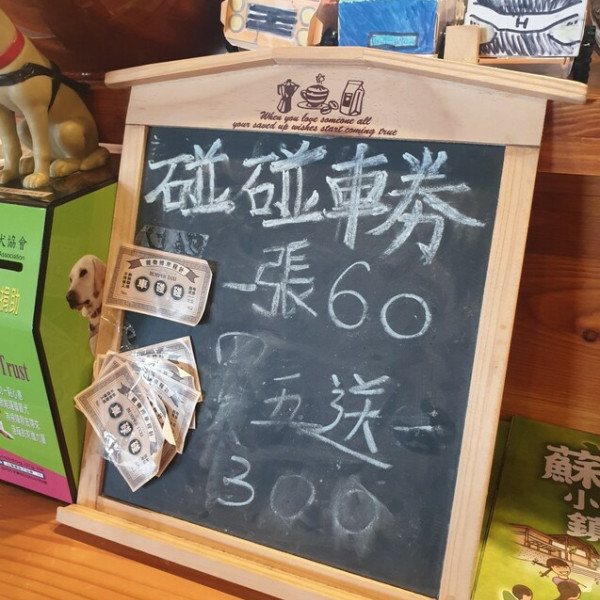 When you love someone all
your saved up wishes start coming true
碰碰車券
一張60
買五送一
300
車碰碰
犬協會
捐助
Trust
蘇
小
鎮
H